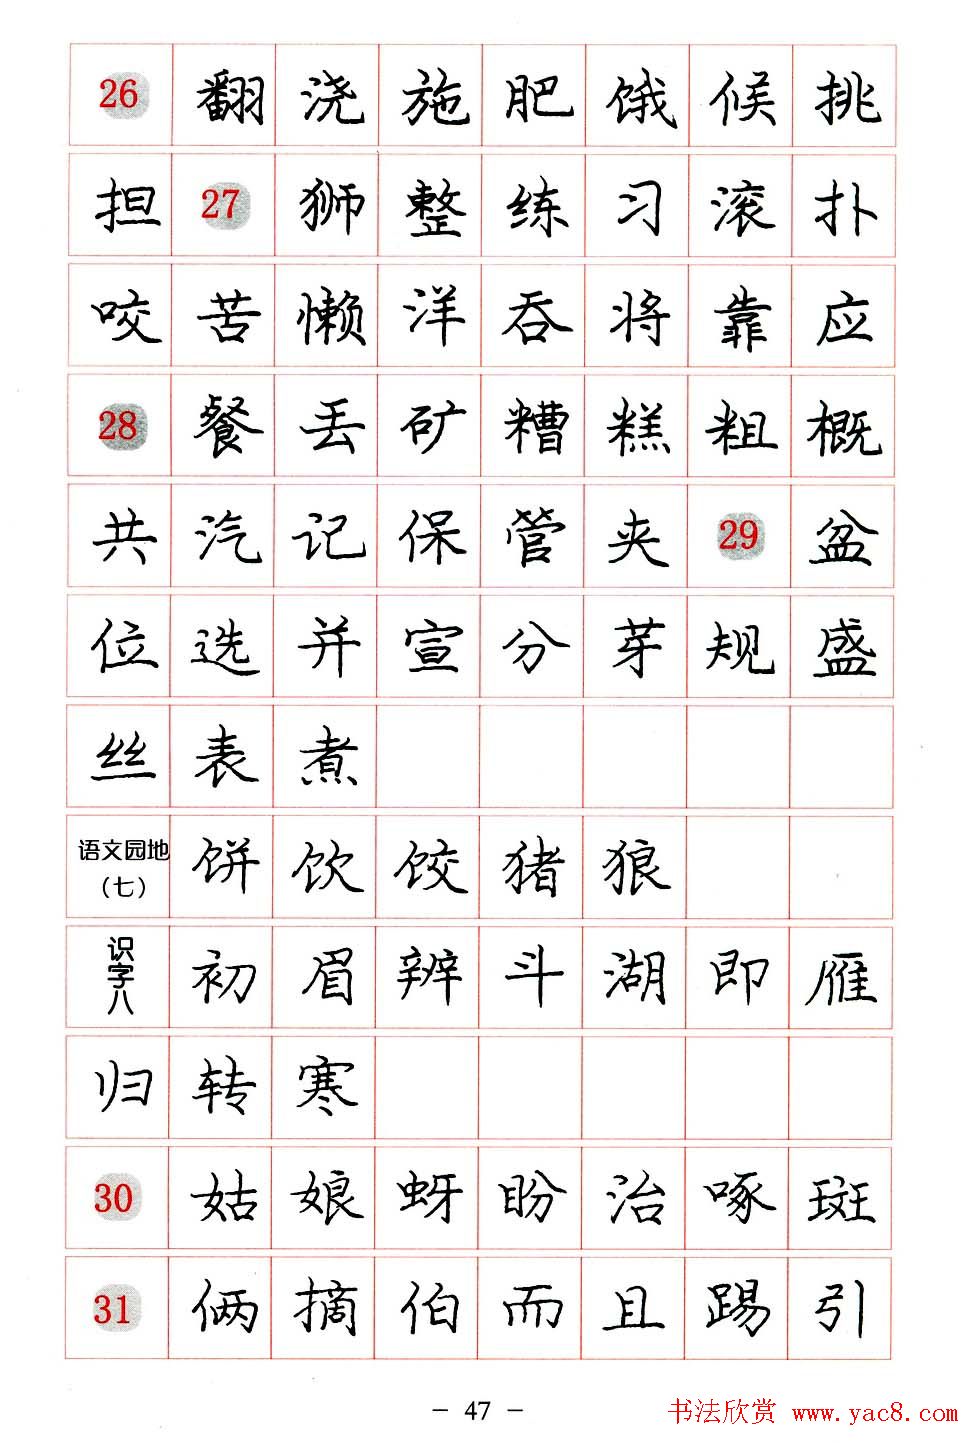 26 翻 浇 施 肥 饿 候 挑
担 27 狮 整 练 习 滚 扑
咬 苦 懒 洋 吞 将 靠 应
28 餐 丢 矿 糟 糕 粗 概
共 汽 记 保 管 夹 29 盆
位 选 并 宣 分 芽 规 盛
丝 表 煮
语文园地（七） 饼 饮 饺 猪 狼
识字八 初 眉 辨 斗 湖 即 雁
归 转 寒
30 姑 娘 蚜 盼 治 啄 斑
31 俩 摘 伯 而 且 踢 引
– 47 –
书法欣赏 www.yac8.com